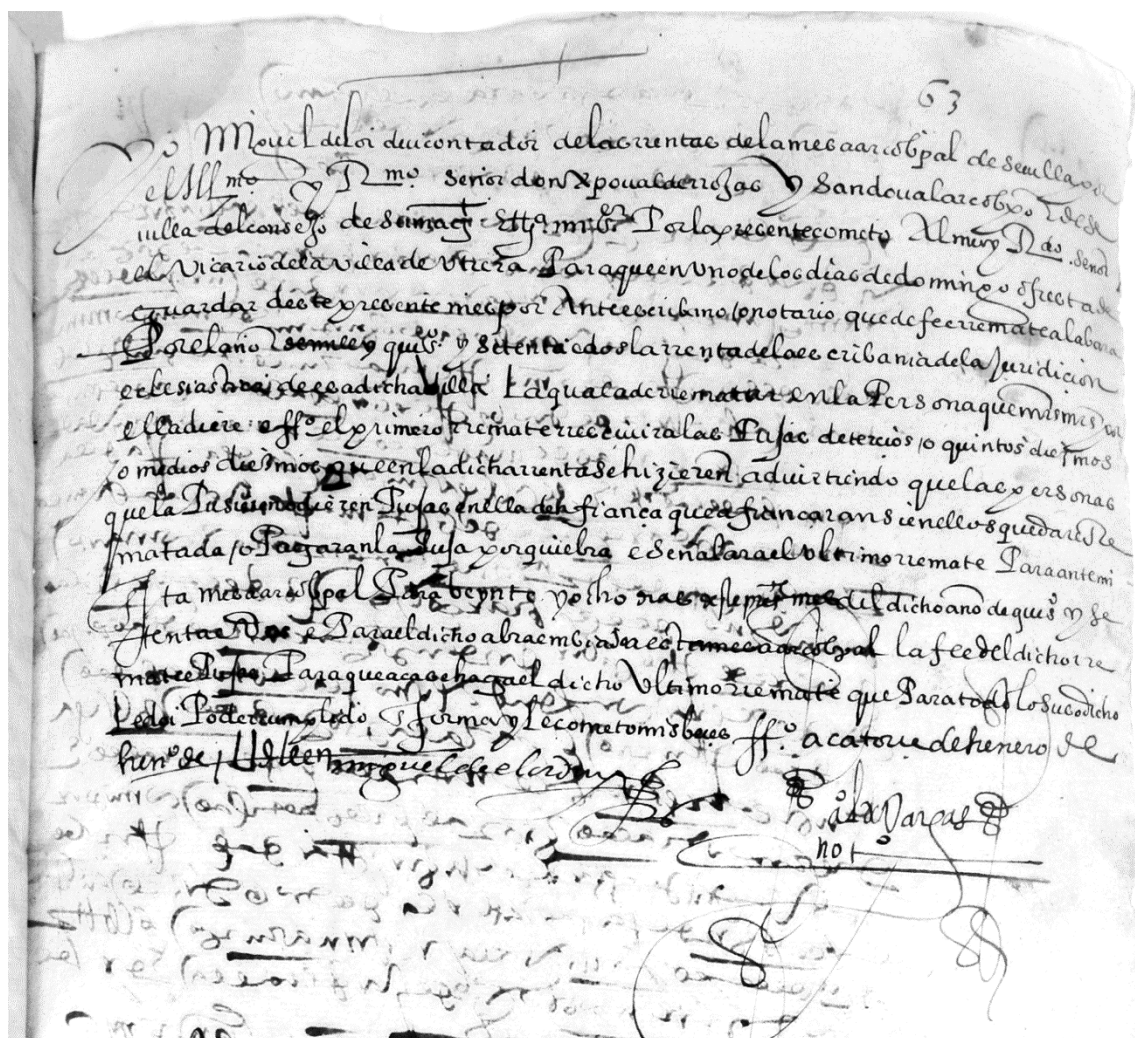 63
Yo Miguel de loi de u contador de las rentas de la mesa arcobpal de seuilla por
el Illmo y Rmo señor don xpoual de rrojas y sandoual arcobpo de se
uilla del consejo de su magt Por la presente cometo Al muy Rdo señor
el Vicario de la villa de Vtrera Para que en Vno de los dias de domingo o fiesta de
guardar deste presente mes por Ante escribano o notario que de fee rremate a la bara
Por el año de mill y quis y setenta e dos la rrenta de la escribania de la Juridicion
eclesiastica de esa dicha villa La qual a de rrematar en la Persona que mas mrs por
ella diere e ffo el primero rremate rreceuira las Pujas de tercios o quintos diezmos
o medios diezmos que en la dicha rrenta se hizieren aduirtiendo que las personas
que la Pusieren Pujas en ella den fiança que afiançaran si en ellos quedare Re
matada o Pagaran la Puja por quiebra e Señalara el Vltimo rremate Para ante mi
Para beynte y ocho dias mes del dicho año de quis y se
tenta e Dos e Para el dicho a esta mesa arcobpal la fee del dicho rre
mate e Pujas Para que aca se haga el dicho Vltimo rremate que Para todo lo susodicho
Le doi Poder cumplido en forma y Le cometo mis beçes ffo a catorze de henero de
miguel de
Vargas
noto